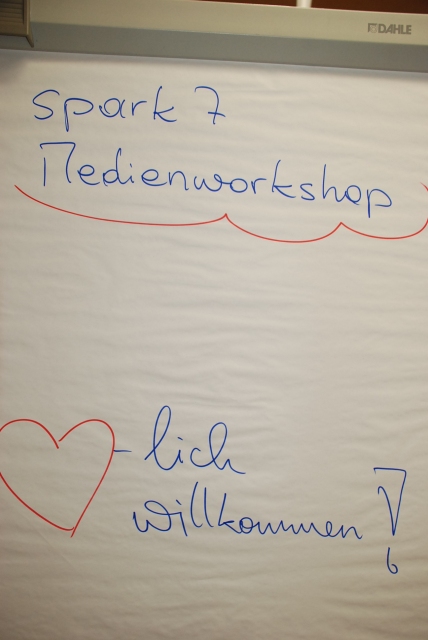 DAHLE
spark 7
Medienworkshop
-lich
willkommen!